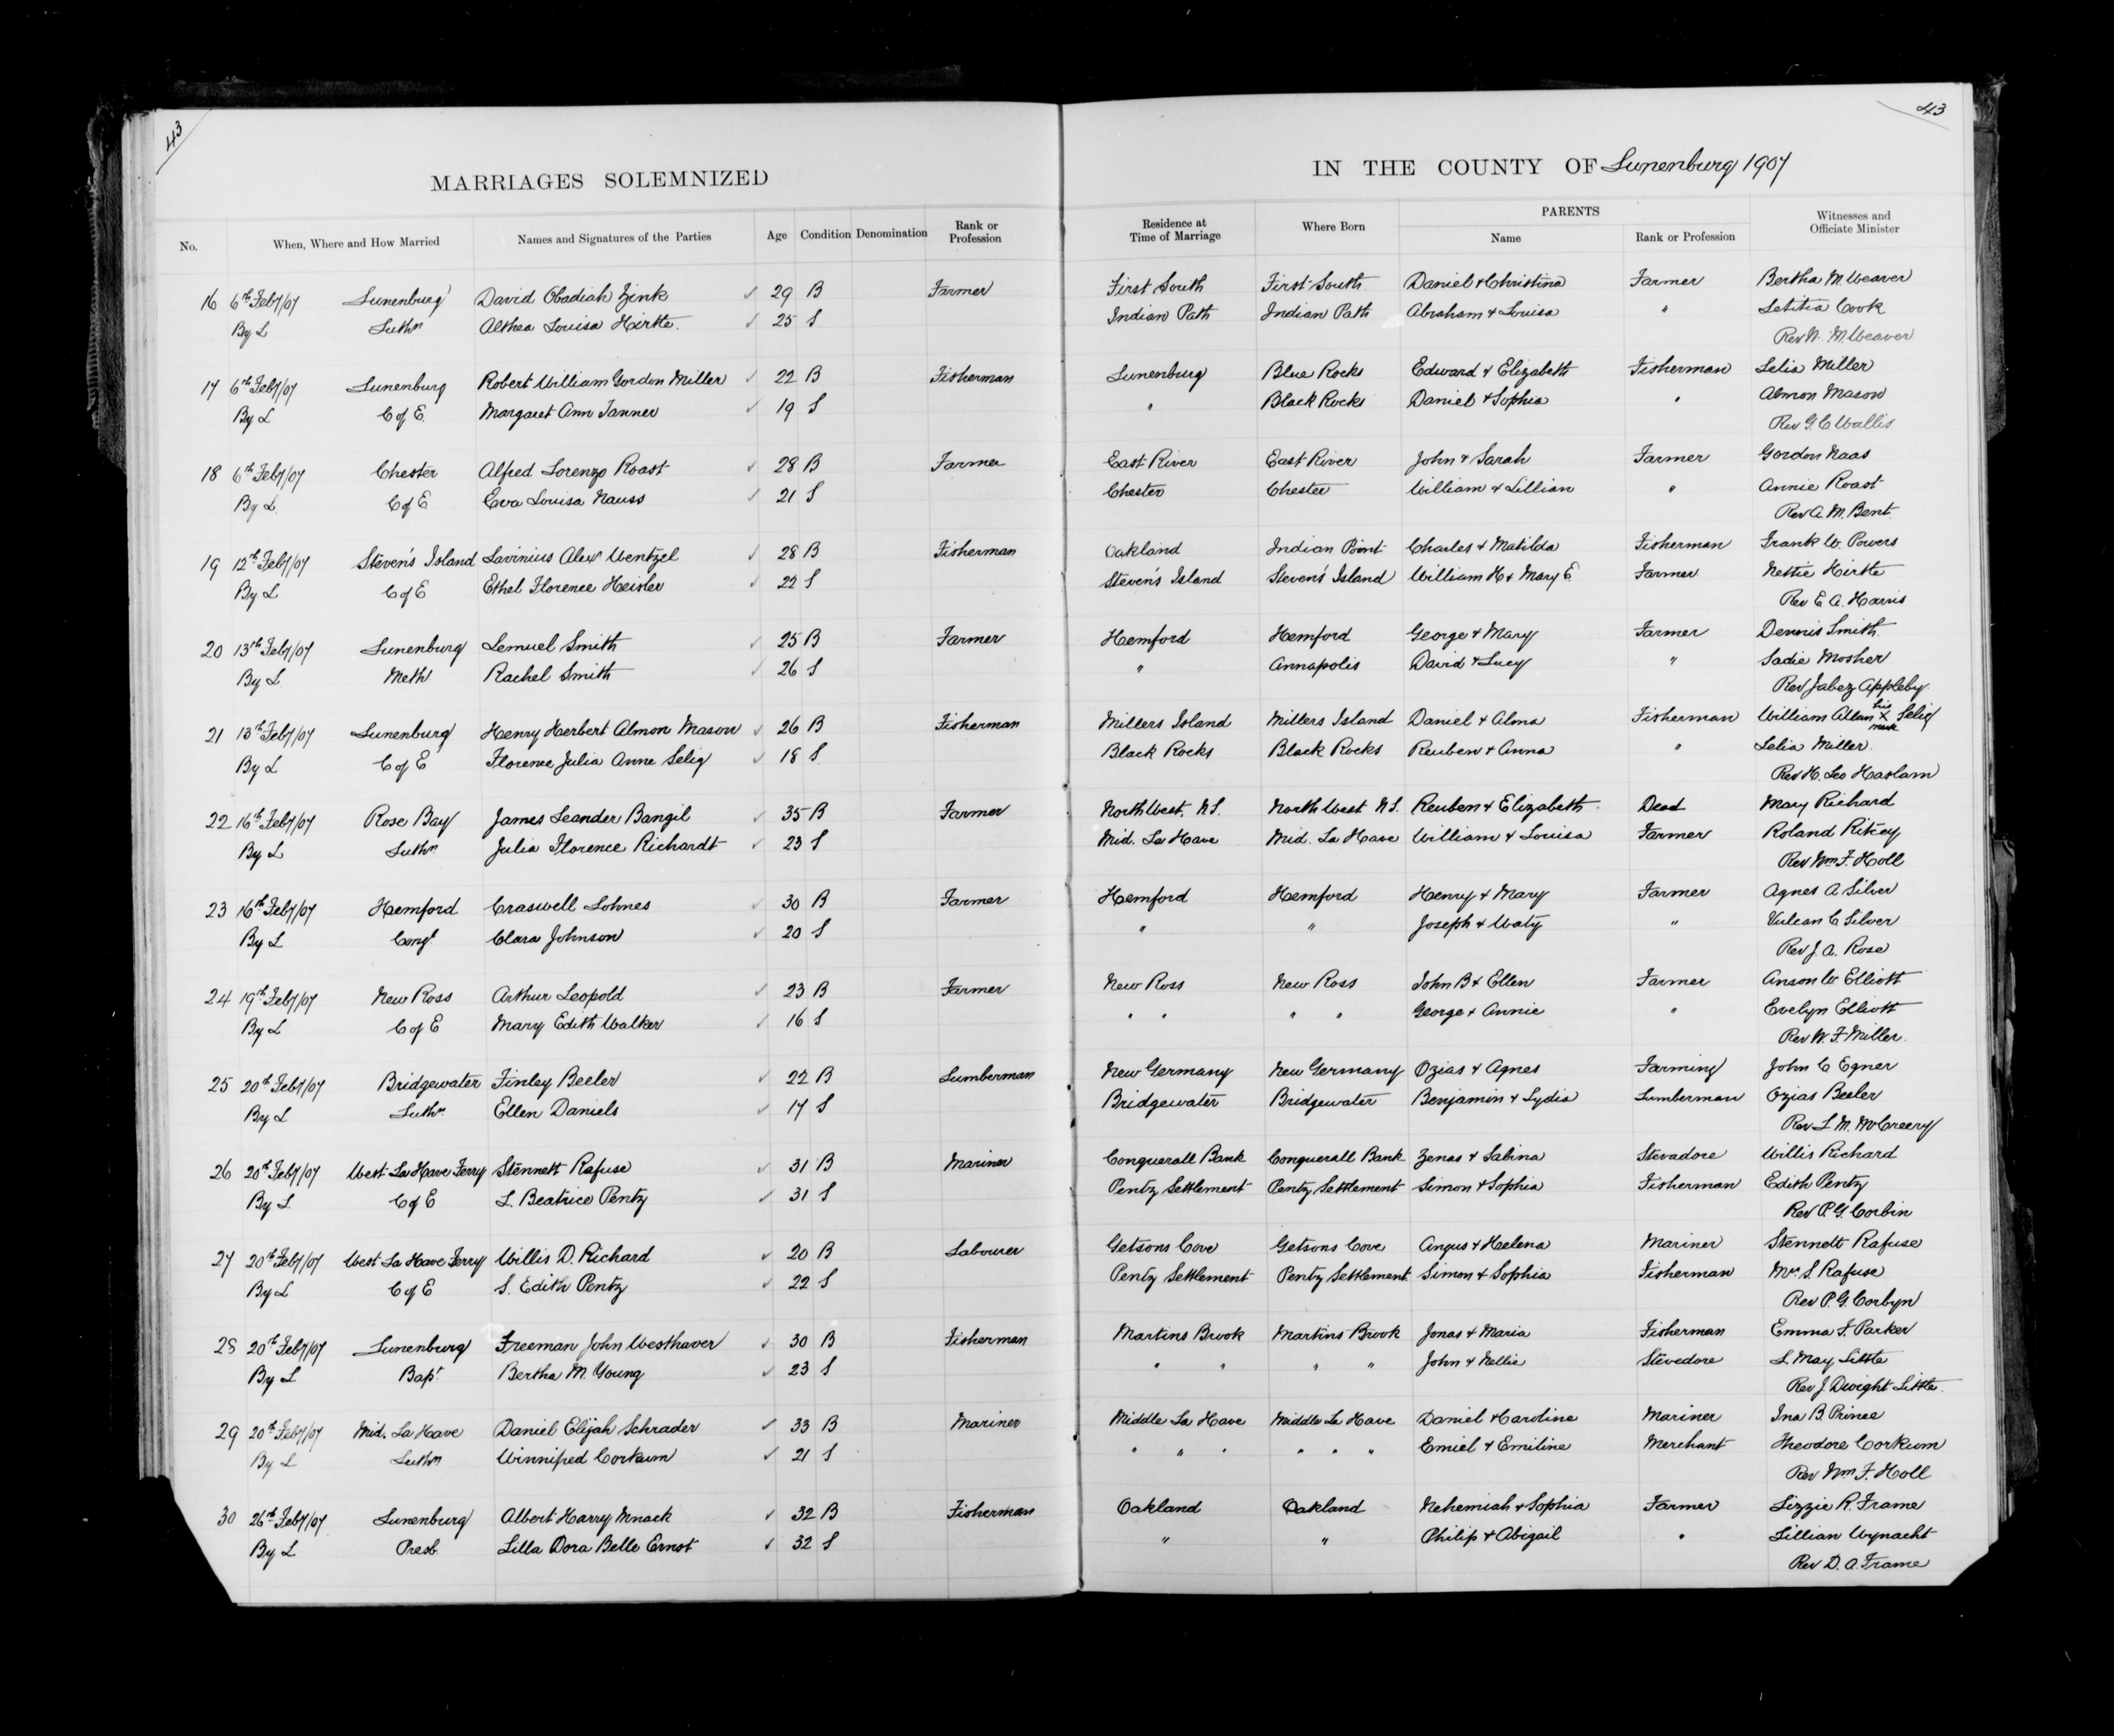 43
43
MARRIAGES SOLEMNIZED IN THE COUNTY OF Lunenburg 1907
No. When, Where and How Married Names and Signatures of the Parties Age Condition Denomination Rank or Profession Residence at Time of Marriage Where Born PARENTS Name Rank or Profession Witnesses and Officiate Minister
16 6th Feby/07 Lunenburg David Obadiah Zink 29 B Farmer First South First South Daniel & Christina Farmer Bertha M. Weaver
By L Luthn Althea Louisa Hirtle 25 S Indian Path Indian Path Abraham & Louisa " Letitia Cook
Rev W. M. Weaver
17 6th Feby/07 Lunenburg Robert William Gordon Miller 22 B Fisherman Lunenburg Blue Rocks Edward & Elizabeth Fisherman Lelia Miller
By L C of E. Margaret Ann Tanner 19 S " Black Rocks Daniel & Sophia " Almon Mason
Rev G. C Wallis
18 6th Feby/07 Chester Alfred Lorenzo Roast 28 B Farmer East River East River John & Sarah Farmer Gordon Naas
By L. C of E Eva Louisa Nauss 21 S Chester Chester William & Lillian " Annie Roast
Rev A. M. Bent.
19 12th Feby/07 Steven's Island Lavinius Alexr Wentzel 28 B Fisherman Oakland Indian Point Charles & Matilda Fisherman Frank W. Powers
By L C of E Ethel Florence Heisler 22 S Steven's Island Steven's Island William H & Mary E Farmer Nettie Hirtle
Rev E. A. Harris
20 13th Feby/07 Lunenburg Lemuel Smith 25 B Farmer Hemford Hemford George & Mary Farmer Dennis Smith
By L Meth Rachel Smith 26 S " Annapolis David & Lucy " Sadie Mosher
Rev Jabez Appleby
21 13th Feby/07 Lunenburg Henry Herbert Almon Mason 26 B Fisherman Millers Island Millers Island Daniel & Alma Fisherman William Allan his X mark Selig
By L C of E Florence Julia Anne Selig 18 S. Black Rocks Black Rocks Reuben & Anna " Lelia Miller
Rev H. Leo Haslam
22 16th Feby/07 Rose Bay James Leander Bangil 35 B Farmer North West, N.S. North West N.S. Reuben & Elizabeth Dead Mary Richard
By L Luthn Julia Florence Richardt 23 S Mid. La Have Mid. La Have William & Louisa Farmer Roland Ritcey
Rev Wm F. Holl
23 16th Feby/07 Hemford Craswell Lohnes 30 B Farmer Hemford Hemford Henry & Mary Farmer Agnes A Silver
By L Congl Clara Johnson 20 S " " Joseph & Waty " Vulean C Silver
Rev J. A. Rose
24 19th Feby/07 New Ross Arthur Leopold 23 B Farmer New Ross New Ross John B & Ellen Farmer Anson W Elliott
By L C of E Mary Edith Walker 16 S " " " " George & Annie " Evelyn Elliott
Rev W. F. Miller
25 20th Feby/07 Bridgewater Finley Beeler 22 B Lumberman New Germany New Germany Ozias & Agnes Farming John C Egner
By L Luthn Ellen Daniels 17 S Bridgewater Bridgewater Benjamin & Lydia Lumberman Ozias Beeler
Rev L. M. McCreery
26 20th Feby/07 West La Have Ferry Stennett Rafuse 31 B Mariner Conquerall Bank Conquerall Bank Zenas & Sabina Stevadore Willis Richard
By L C of E L. Beatrice Pentz 31 S Pentz Settlement Pentz Settlement Simon & Sophia Fisherman Edith Pentz
Rev P. G. Corbin
27 20th Feby/07 West La Have Ferry Willis D. Richard 20 B Labourer Getsons Cove Getsons Cove Angus & Helena Mariner Stennett Rafuse
By L C of E S. Edith Pentz 22 S Pentz Settlement Pentz Settlement Simon & Sophia Fisherman Mrs. S. Rafuse
Rev P. G. Corbyn
28 20th Feby/07 Lunenburg Freeman John Westhaver 30 B Fisherman Martins Brook Martins Brook Jonas & Maria Fisherman Emma F. Parker
By L Bapt Bertha M. Young 23 S " " " " John & Nellie Stevedore L. May Little
Rev J. Dwight Little
29 20th Feby/07 Mid. La Have Daniel Elijah Schrader 33 B Mariner Middle La Have Middle La Have Daniel & Caroline Mariner Ina B. Prince
By L Luthn Winnifred Corkum 21 S " " " " " " Emiel & Emiline Merchant Theodore Corkum
Rev Wm F. Holl
30 26th Feby/07 Lunenburg Albert Harry Mnack 32 B Fisherman Oakland Oakland Nehemiah & Sophia Farmer Lizzie R. Frame
By L Presb. Lilla Dora Belle Ernst 32 S " " Philip & Abigail " Lillian Wynacht
Rev D. A. Frame